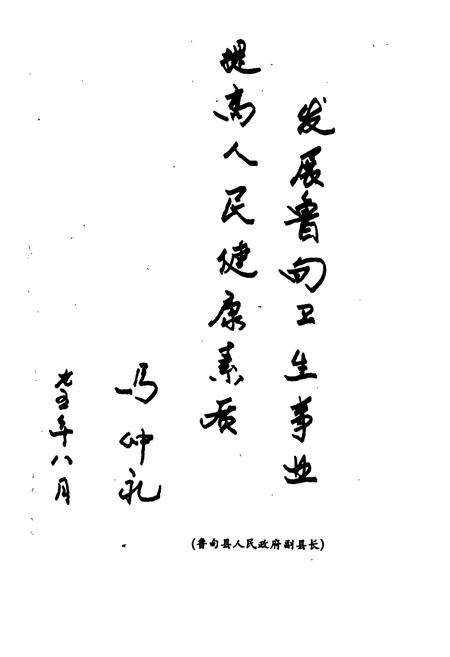 发展鲁甸卫生事业
提高人民健康素质
马仲礼
九五年八月
(鲁甸县人民政府副县长)